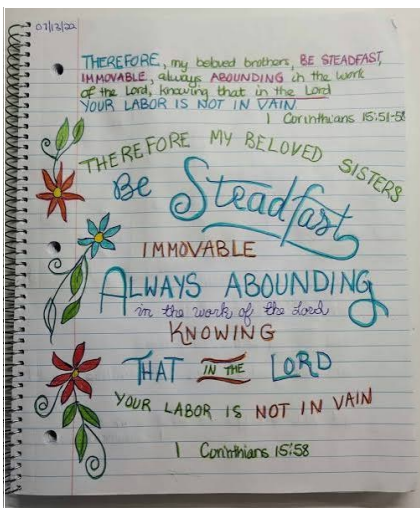 07/13/22
THEREFORE, my beloved brothers, BE STEADFAST,
IMMOVABLE, always ABOUNDING in the work
of the Lord, knowing that in the Lord
YOUR LABOR IS NOT IN VAIN
1 Corinthians 15:51-58
THEREFORE MY BELOVED SISTERS
Be Steadfast
IMMOVABLE
ALWAYS ABOUNDING
in the work of the Lord
KNOWING
THAT IN THE LORD
YOUR LABOR IS NOT IN VAIN
1 Corinthians 15:58